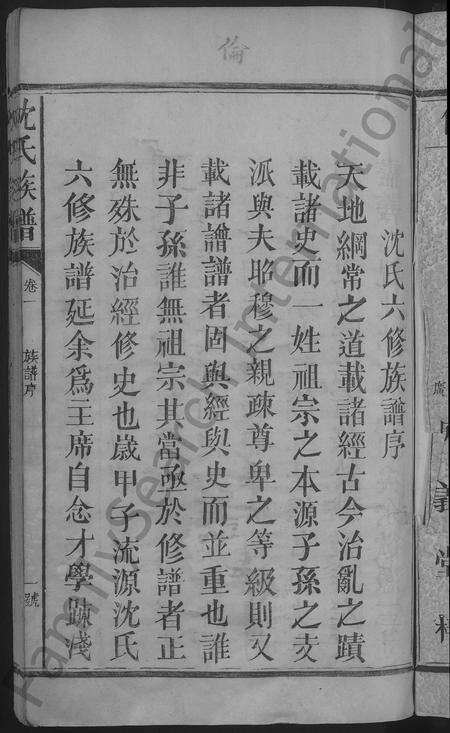 倫
沈氏六修族譜序
天地綱常之道載諸經古今治亂之蹟
載諸史而一姓祖宗之本源子孫之支
派與夫昭穆之親疎尊卑之等級則又
載諸譜譜者固與經與史而並重也誰
非子孫誰無祖宗其當亟於修譜者正
無殊於治經修史也歲甲子流源沈氏
六修族譜延余爲主席自念才學踈淺
沈氏族譜
卷一
族譜序
一號
FamilySearch International